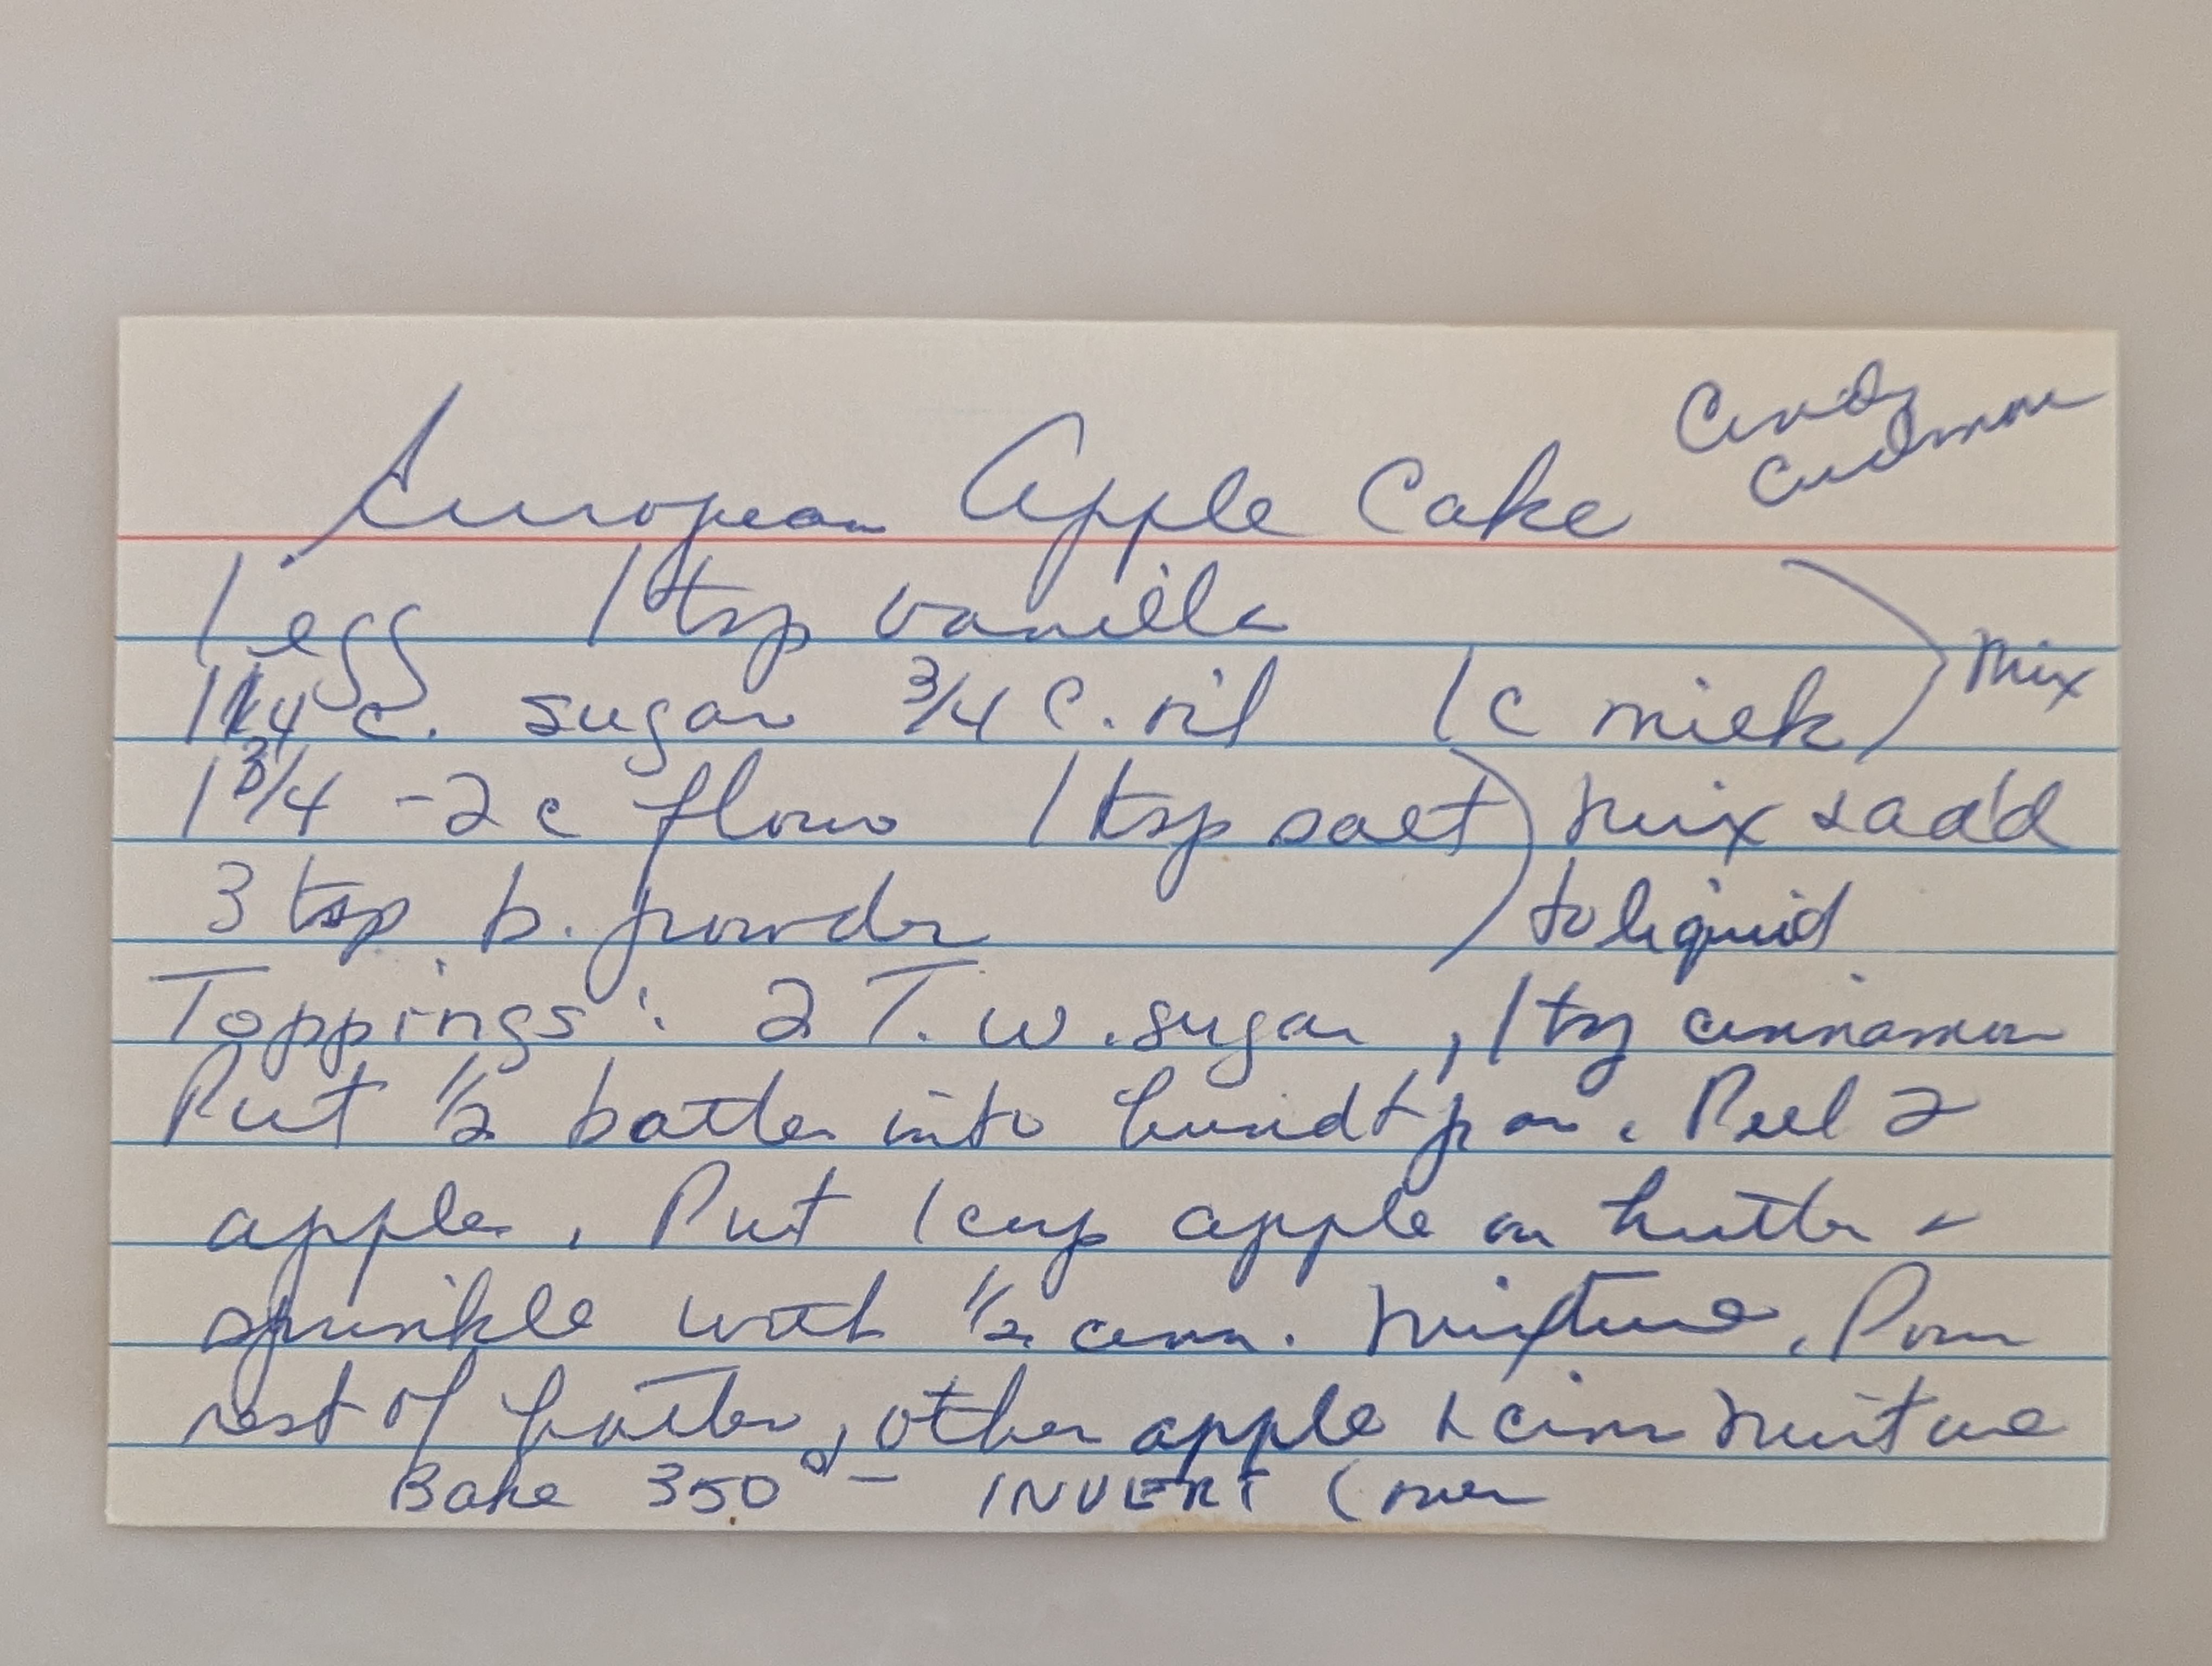 European Apple Cake
Cindy
1 egg 1 tsp vanilla
1 1/4 c. sugar 3/4 c. oil 1 c milk ) Mix
1 3/4 - 2 c flour 1 tsp salt ) Mix & add
3 tsp b. powder to liquid
Toppings: 2 T. w. sugar, 1 tsp cinnamon
Put 1/2 batter into bundt pan. Peel 2
apples. Put 1 cup apple on batter &
sprinkle with 1/2 cinn. mixture. Pour
rest of batter, other apple & cinn mixture
Bake 350° - INVERT (over